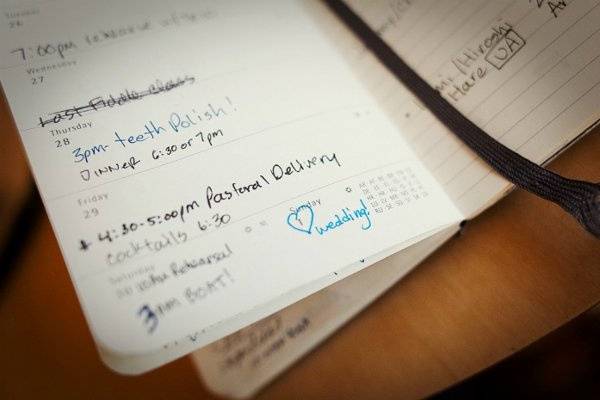 Tuesday
26
7:00pm rehearse
Wednesday
27
Last Fiddle Class
Thursday
28
3pm - teeth Polish!
DINNER 6:30 or 7pm
Friday
29
4:30-5:00pm Pastoral Delivery
cocktails 6:30
Saturday
30 10am Rehearsal
3pm BOAT!
Sunday
1
wedding!
/Hiroshi
Hare UA